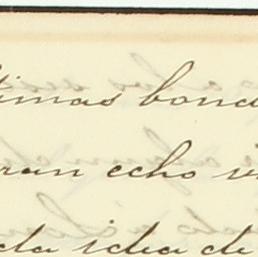 timas bond
ran echo v
da idea de